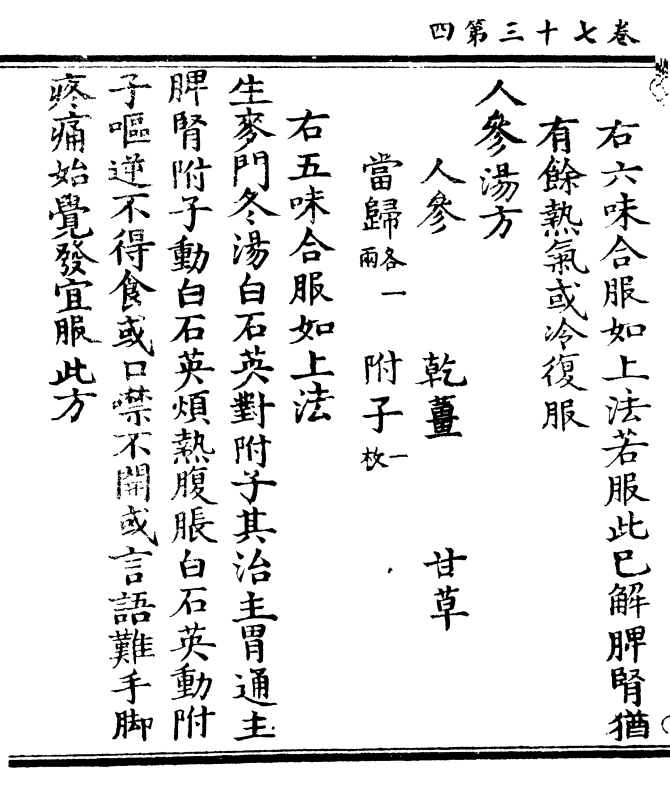 卷七十三第四
右六味合服如上法若服此已解脾腎猶
有餘熱氣或冷復服
人參湯方
人參　乾薑　甘草
當歸各一兩　附子一枚
右五味合服如上法
生麥門冬湯白石英對附子其治主胃通主
脾腎附子動白石英煩熱腹脹白石英動附
子嘔逆不得食或口噤不開或言語難手脚
疼痛始覺發宜服此方